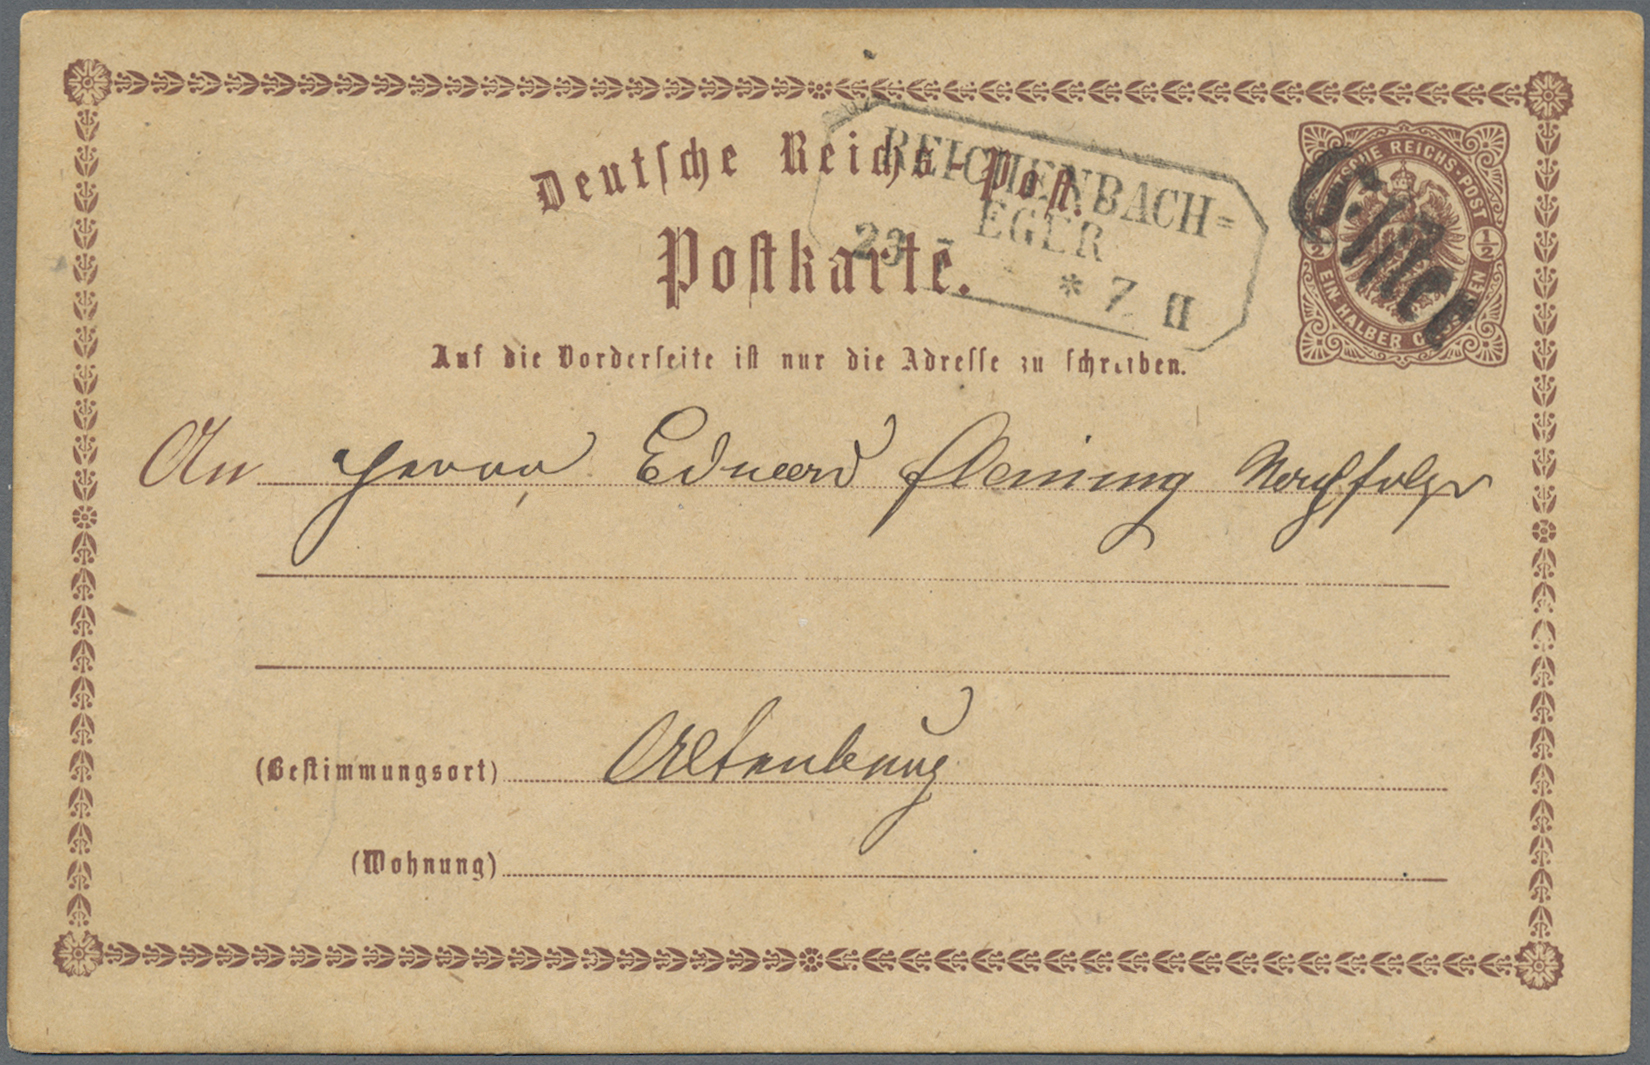 Deutsche Reichs-Post.
Postkarte.
REICHENBACH=
EGER
23 * 7 II
DEUTSCHE REICHS-POST
½ ½
EIN HALBER GROSCHEN
Auf die Vorderseite ist nur die Adresse zu schreiben.
An Herrn Eduard Fleming Nachfolger
(Bestimmungsort) Altenburg
(Wohnung)